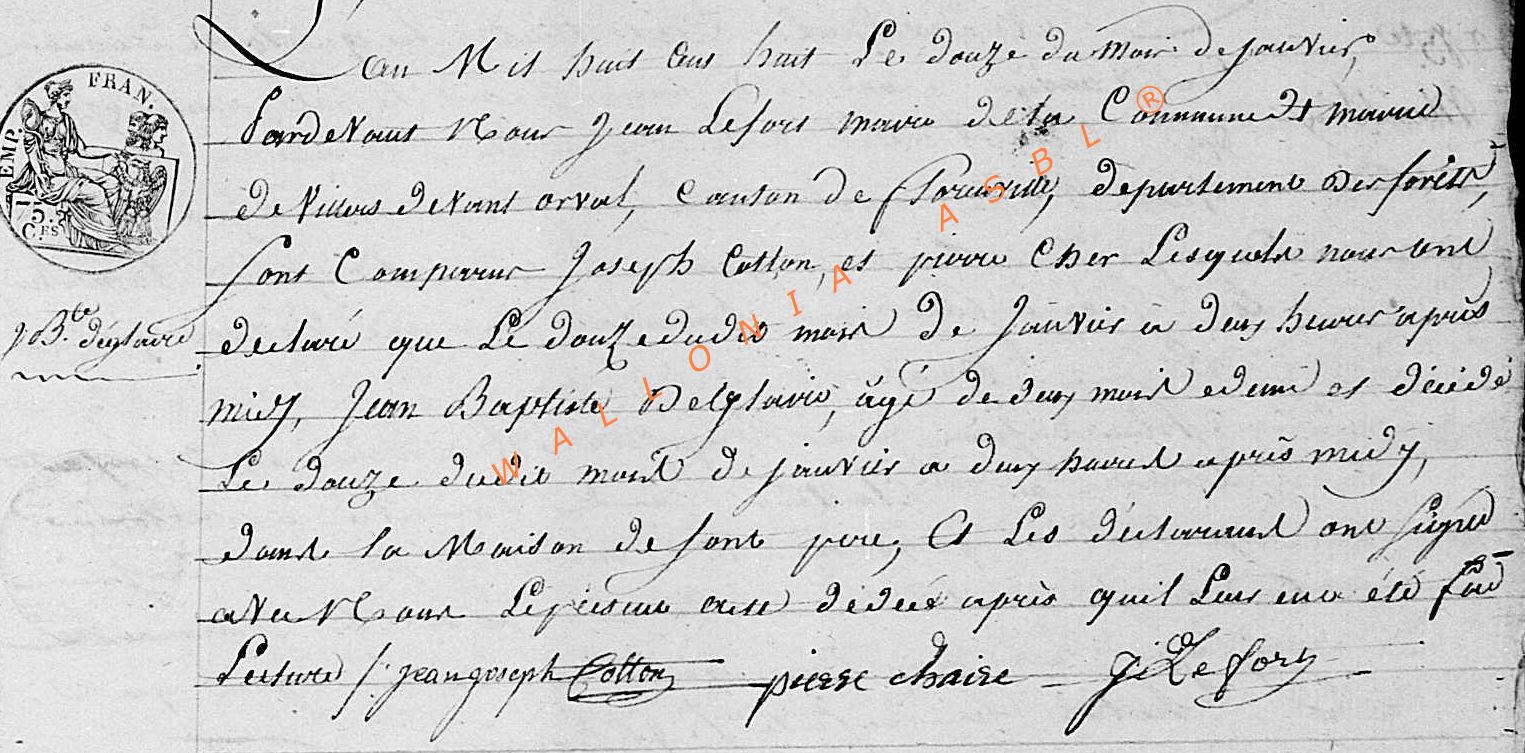 L'an Mil huit cens huit Le douze du mois de janvier,
Pardevant Nous Jean Lefort maire de la Commune et mairie
de Villers devant orval, Canton de florenville, departement des forêts,
sont Comparus Joseph Cotton, et pierre Cher Lesquels nous ont
declaré que Le douze dudit mois de Janvier a deux heures après
midy, Jean Baptiste Delglavie, âgé de deux mois edemi est décédé
Le douze dudit mois de janvier a deux heures après midy,
dans la Maison de sont pere, Et Les déclarants ont signé
avec Nous Le present acte dédécé après quil Leur en a été fait
Lecture /. jean joseph Cotton pierre chaire J Lefort
EMP. FRAN.
75.
C.ES
J B.te déglavie
WALLONIA ASBL ®